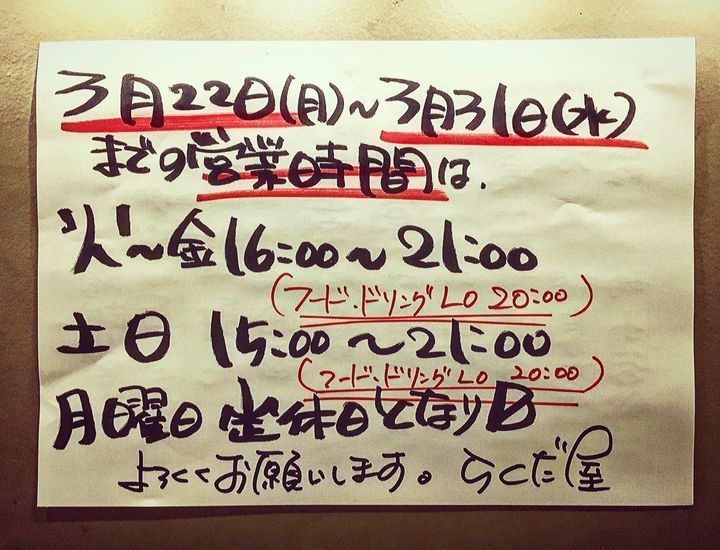 3月22日(月)~3月31日(水)
までの営業時間は、
火~金 16:00~21:00
(フード・ドリングLO 20:00)
土日 15:00~21:00
(フード・ドリングLO 20:00)
月曜日 定休日となります
よろしくお願いします。 らくだ屋